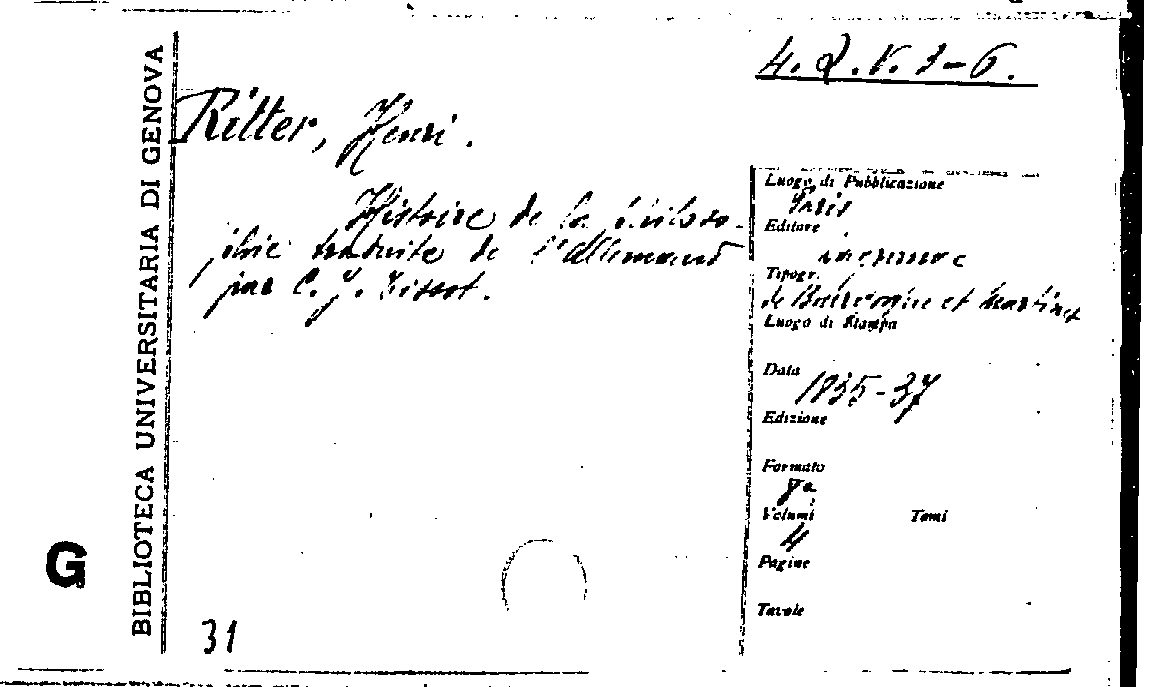 BIBLIOTECA UNIVERSITARIA DI GENOVA
G
4. Q. V. 3-6.
Ritter, Henri.
Histoire de la philoso-
phie traduite de l'allemand
par C. J. Tissot.
Luogo di Pubblicazione
Paris
Editore
imprimerie
Tipogr.
de Bourgogne et Martinet
Luogo di Stampa
Data
1835-37
Edizione
Formato
8º
Volumi Tomi
4
Pagine
Tavole
31